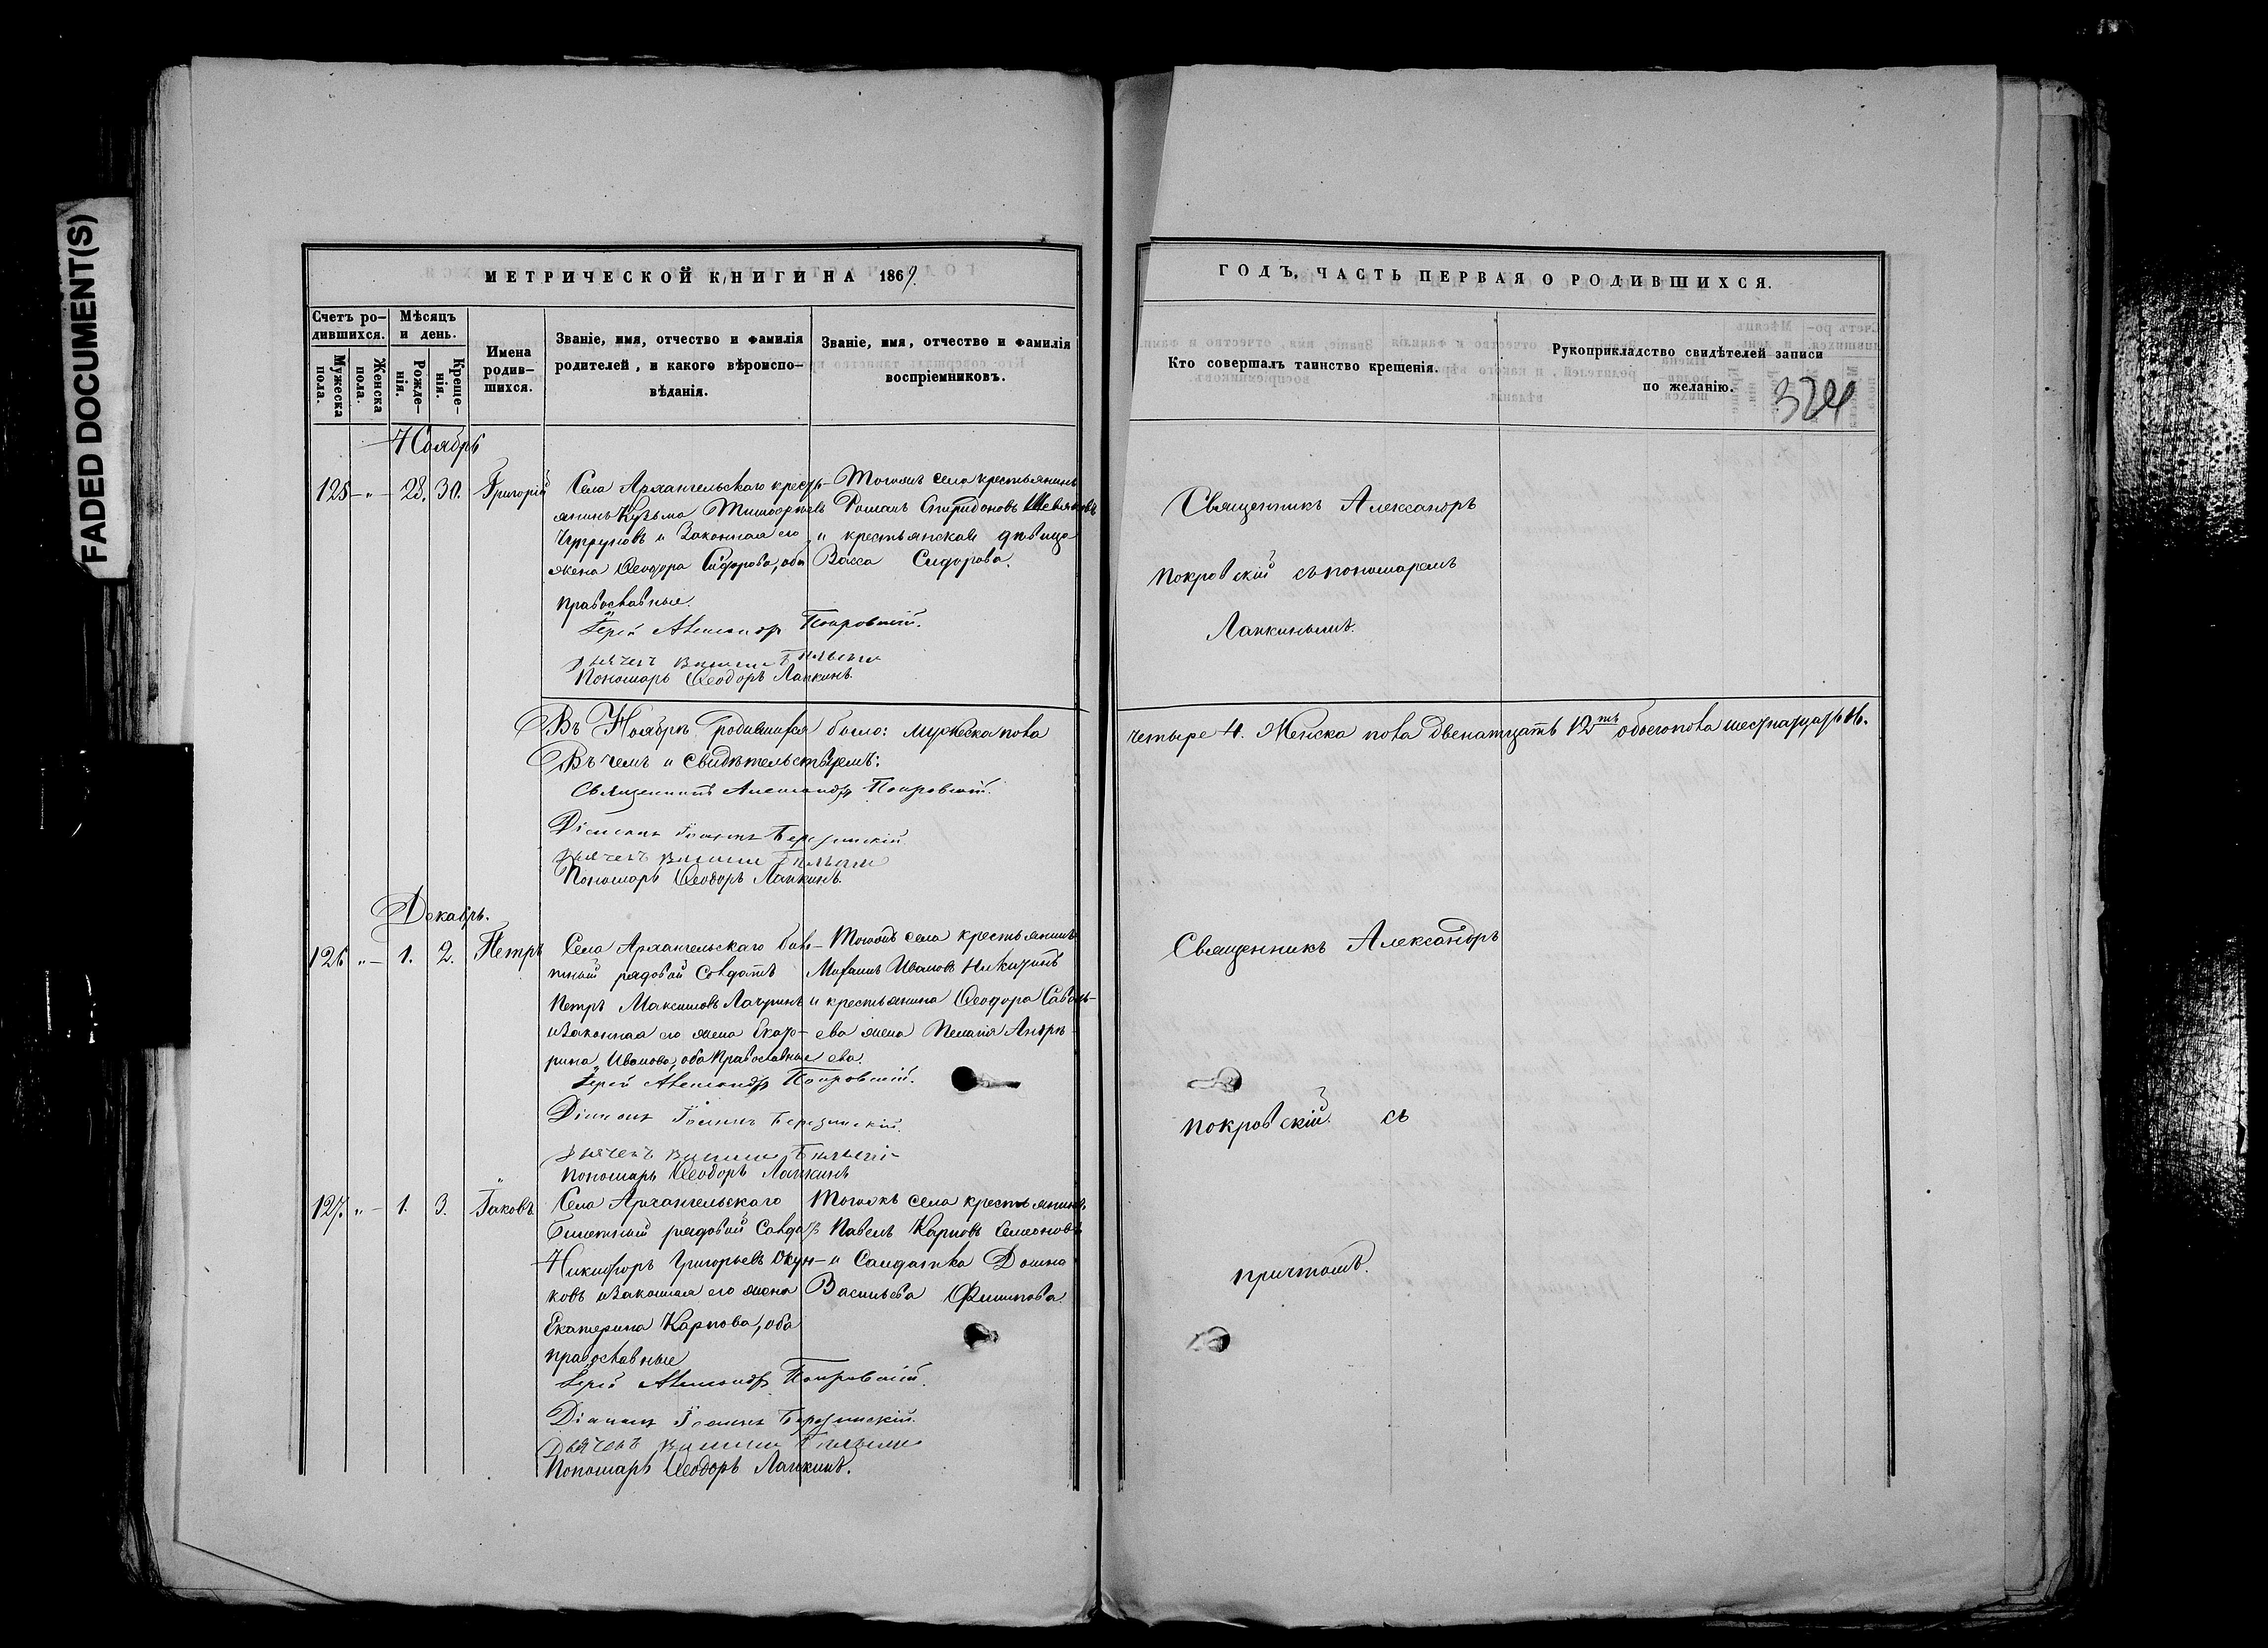 FADED DOCUMENT(S)
МЕТРИЧЕСКОЙ КНИГИ НА 1869.
Счетъ ро-
дившихся.
Мужеска
пола.
Женска
пола.
Мѣсяцъ
и день.
Рожде-
нія.
Креще-
нія.
Имена
родив-
шихся.
Званіе, имя, отчество и фамилія
родителей, и какого вѣроиспо-
вѣданія.
Званіе, имя, отчество и фамилія
воспріемниковъ.
Ноябрь
125 — „ — 28. 30. Григорій
Села Архангельскаго кресть-
янинъ Кузьма Тимоѳеевъ
и Законная его
жена Ѳеодора Сидорова, оба
православные.
Іерей Александръ Покровскій.
Дьячекъ
Пономарь Ѳеодоръ Лапкинъ.
Тогожъ села крестьянинъ
Романъ Спиридоновъ
и крестьянская дѣвица
Васса Сидорова.
Въ Ноябрѣ родившихся было: мужеска пола
Въ чемъ и свидѣтельствуемъ:
Священникъ Александръ Покровскій.
Діаконъ Іоаннъ Березинскій
Дьячекъ
Пономарь Ѳеодоръ Лапкинъ.
Декабрь.
126 „ — 1. 2. Петръ
Села Архангельскаго биле-
тный рядовой Солдатъ
Петръ Максимовъ
и Законная его жена Екате-
рина Иванова, оба Православные
Іерей Александръ Покровскій.
Діаконъ Іоаннъ Березинскій.
Дьячекъ
Пономарь Ѳеодоръ Лапкинъ
Тогожъ села крестьянинъ
Иванов Никитинъ
и крестьянина Ѳеодора Савель-
ева жена Пелагія Андре-
ева.
127. „ — 1. 3. Іаковъ
Села Архангельскаго
Билетный рядовой Солдатъ
Никифоръ Григорьевъ Окун-
ковъ и Законная его жена
Екатерина Карпова, оба
православные
Іерей Александръ Покровскій.
Діаконъ Іоаннъ Березинскій.
Дьячекъ
Пономарь Ѳеодоръ Лапкинъ.
Тогожъ села крестьянинъ
Павелъ Карповъ Семеновъ
и Солдатка Домна
Васильева Филипова
ГОДЪ, ЧАСТЬ ПЕРВАЯ О РОДИВШИХСЯ.
Кто совершалъ таинство крещенія.
Рукоприкладство свидѣтелей записи
по желанію.
324
Священникъ Александръ
Покровскій съ пономаремъ
Лапкинымъ.
четыре 4. Женска пола двенатцать 12ть обоего пола шестнадцать 16.
Священникъ Александръ
Покровскій съ
причтомъ.